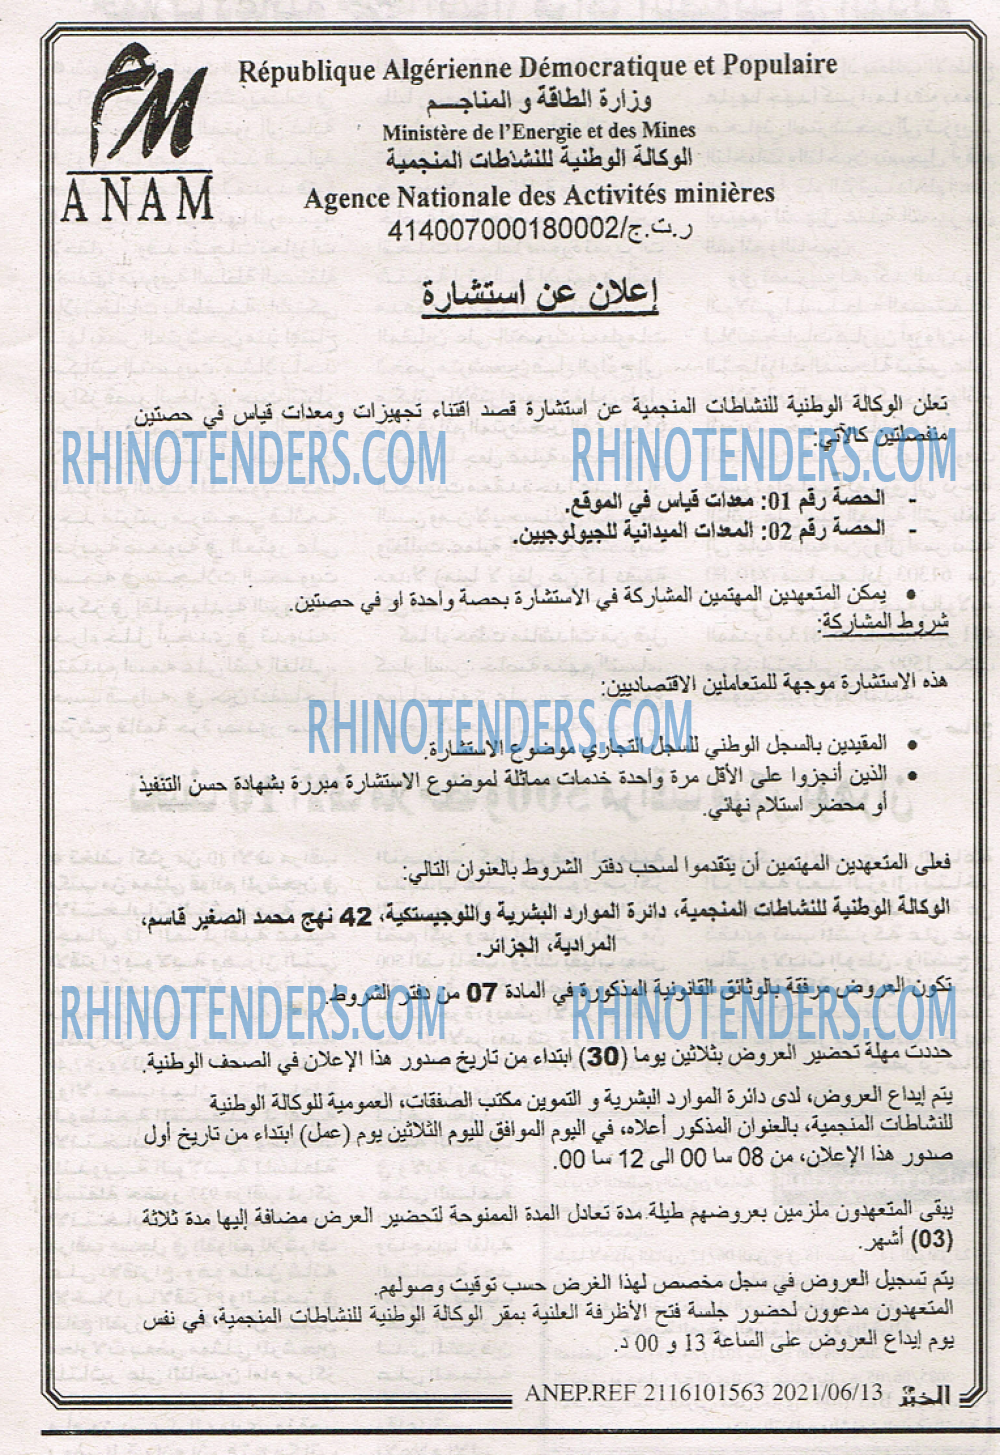 ANAM
République Algérienne Démocratique et Populaire
وزارة الطاقة و المناجـــم
Ministère de l'Energie et des Mines
الوكالة الوطنية للنشاطات المنجمية
Agence Nationale des Activités minières
ر.ت.ج/414007000180002
إعلان عن استشارة
تعلن الوكالة الوطنية للنشاطات المنجمية عن استشارة قصد اقتناء تجهيزات ومعدات قياس في حصتين
منفصلتين كالآتي:
RHINOTENDERS.COM RHINOTENDERS.COM
- الحصة رقم 01: معدات قياس في الموقع.
- الحصة رقم 02: المعدات الميدانية للجيولوجيين.
• يمكن المتعهدين المهتمين المشاركة في الاستشارة بحصة واحدة او في حصتين.
شروط المشاركة:
هذه الاستشارة موجهة للمتعاملين الاقتصاديين:
RHINOTENDERS.COM
• المقيدين بالسجل الوطني للسجل التجاري موضوع الاستشارة.
• الذين أنجزوا على الأقل مرة واحدة خدمات مماثلة لموضوع الإستشارة مبررة بشهادة حسن التنفيذ
أو محضر استلام نهائي.
فعلى المتعهدين المهتمين أن يتقدموا لسحب دفتر الشروط بالعنوان التالي:
الوكالة الوطنية للنشاطات المنجمية، دائرة الموارد البشرية واللوجيستكية، 42 نهج محمد الصغير قاسم،
المرادية، الجزائر.
تكون العروض مرفقة بالوثائق القانونية المذكورة في المادة 07 من دفتر الشروط.
RHINOTENDERS.COM RHINOTENDERS.COM
حددت مهلة تحضير العروض بثلاثين يوما (30) ابتداء من تاريخ صدور هذا الإعلان في الصحف الوطنية.
يتم إيداع العروض، لدى دائرة الموارد البشرية و التموين مكتب الصفقات، العمومية للوكالة الوطنية
للنشاطات المنجمية، بالعنوان المذكور أعلاه، في اليوم الموافق لليوم الثلاثين يوم (عمل) ابتداء من تاريخ أول
صدور هذا الإعلان، من 08 سا 00 الى 12 سا 00.
يبقى المتعهدون ملزمين بعروضهم طيلة مدة تعادل المدة الممنوحة لتحضير العرض مضافة إليها مدة ثلاثة
(03) أشهر.
يتم تسجيل العروض في سجل مخصص لهذا الغرض حسب توقيت وصولهم.
المتعهدون مدعوون لحضور جلسة فتح الأظرفة العلنية بمقر الوكالة الوطنية للنشاطات المنجمية، في نفس
يوم إيداع العروض على الساعة 13 و 00 د.
الخبر ANEP.REF 2116101563 2021/06/13